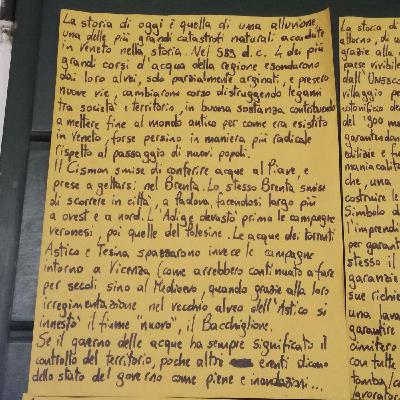 La storia di oggi è quella di una alluvione,
una delle più grandi catastrofi naturali accadute
in Veneto nella storia. Nel 589 d.c. 4 dei più
grandi corsi d'acqua della regione esondarono
dai loro alvei, solo parzialmente arginati, e presero
nuove vie, cambiarono corso distruggendo legami
tra società e territorio, in buona sostanza contribuendo
a mettere fine al mondo antico per come era esistito
in Veneto, forse persino in maniera più radicale
rispetto al passaggio di nuovi popoli.
Il Cismon smise di conferire acque al Piave, e
prese a gettarsi nel Brenta. Lo stesso Brenta smise
di scorrere in città, a Padova, facendosi largo più
a ovest e a nord. L'Adige devastò prima le campagne
veronesi, poi quelle del Polesine. Le acque dei torrenti
Astico e Tesina spazzarono invece le campagne
intorno a Vicenza (come avrebbero continuato a fare
per secoli sino al Medioevo, quando grazie alla loro
irregimentazione nel vecchio alveo dell'Astico si
innestò il fiume "nuovo", il Bacchiglione.
Se il governo delle acque ha sempre significato il
controllo del territorio, poche altre eventi dicono
dello stato del governo come piene e inondazioni...
La storia di
attorno, di u
grazie alla
paese vivibile
dall'UNESCO
villaggio pe
cotonificio de
del '900 mu
garantendon
edilizie e fu
maniacalità
che, una
costruire le
Simbolo d
l'imprendi
per garant
stesso il
garanzie
sue richie
una lava
garantire
cimitero
con tutte
tomba/c
lavorator